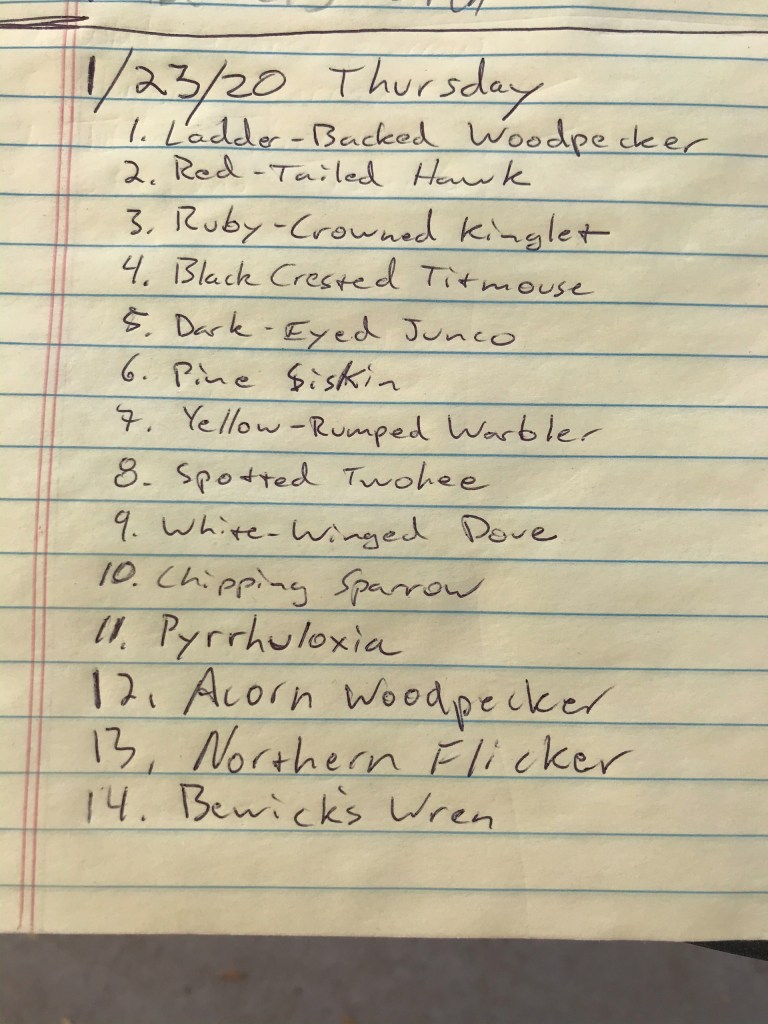 1/23/20 Thursday
1. Ladder-Backed Woodpecker
2. Red-Tailed Hawk
3. Ruby-Crowned Kinglet
4. Black Crested Titmouse
5. Dark-Eyed Junco
6. Pine Siskin
7. Yellow-Rumped Warbler
8. Spotted Twohee
9. White-Winged Dove
10. Chipping Sparrow
11. Pyrrhuloxia
12. Acorn Woodpecker
13, Northern Flicker
14. Bewick's Wren